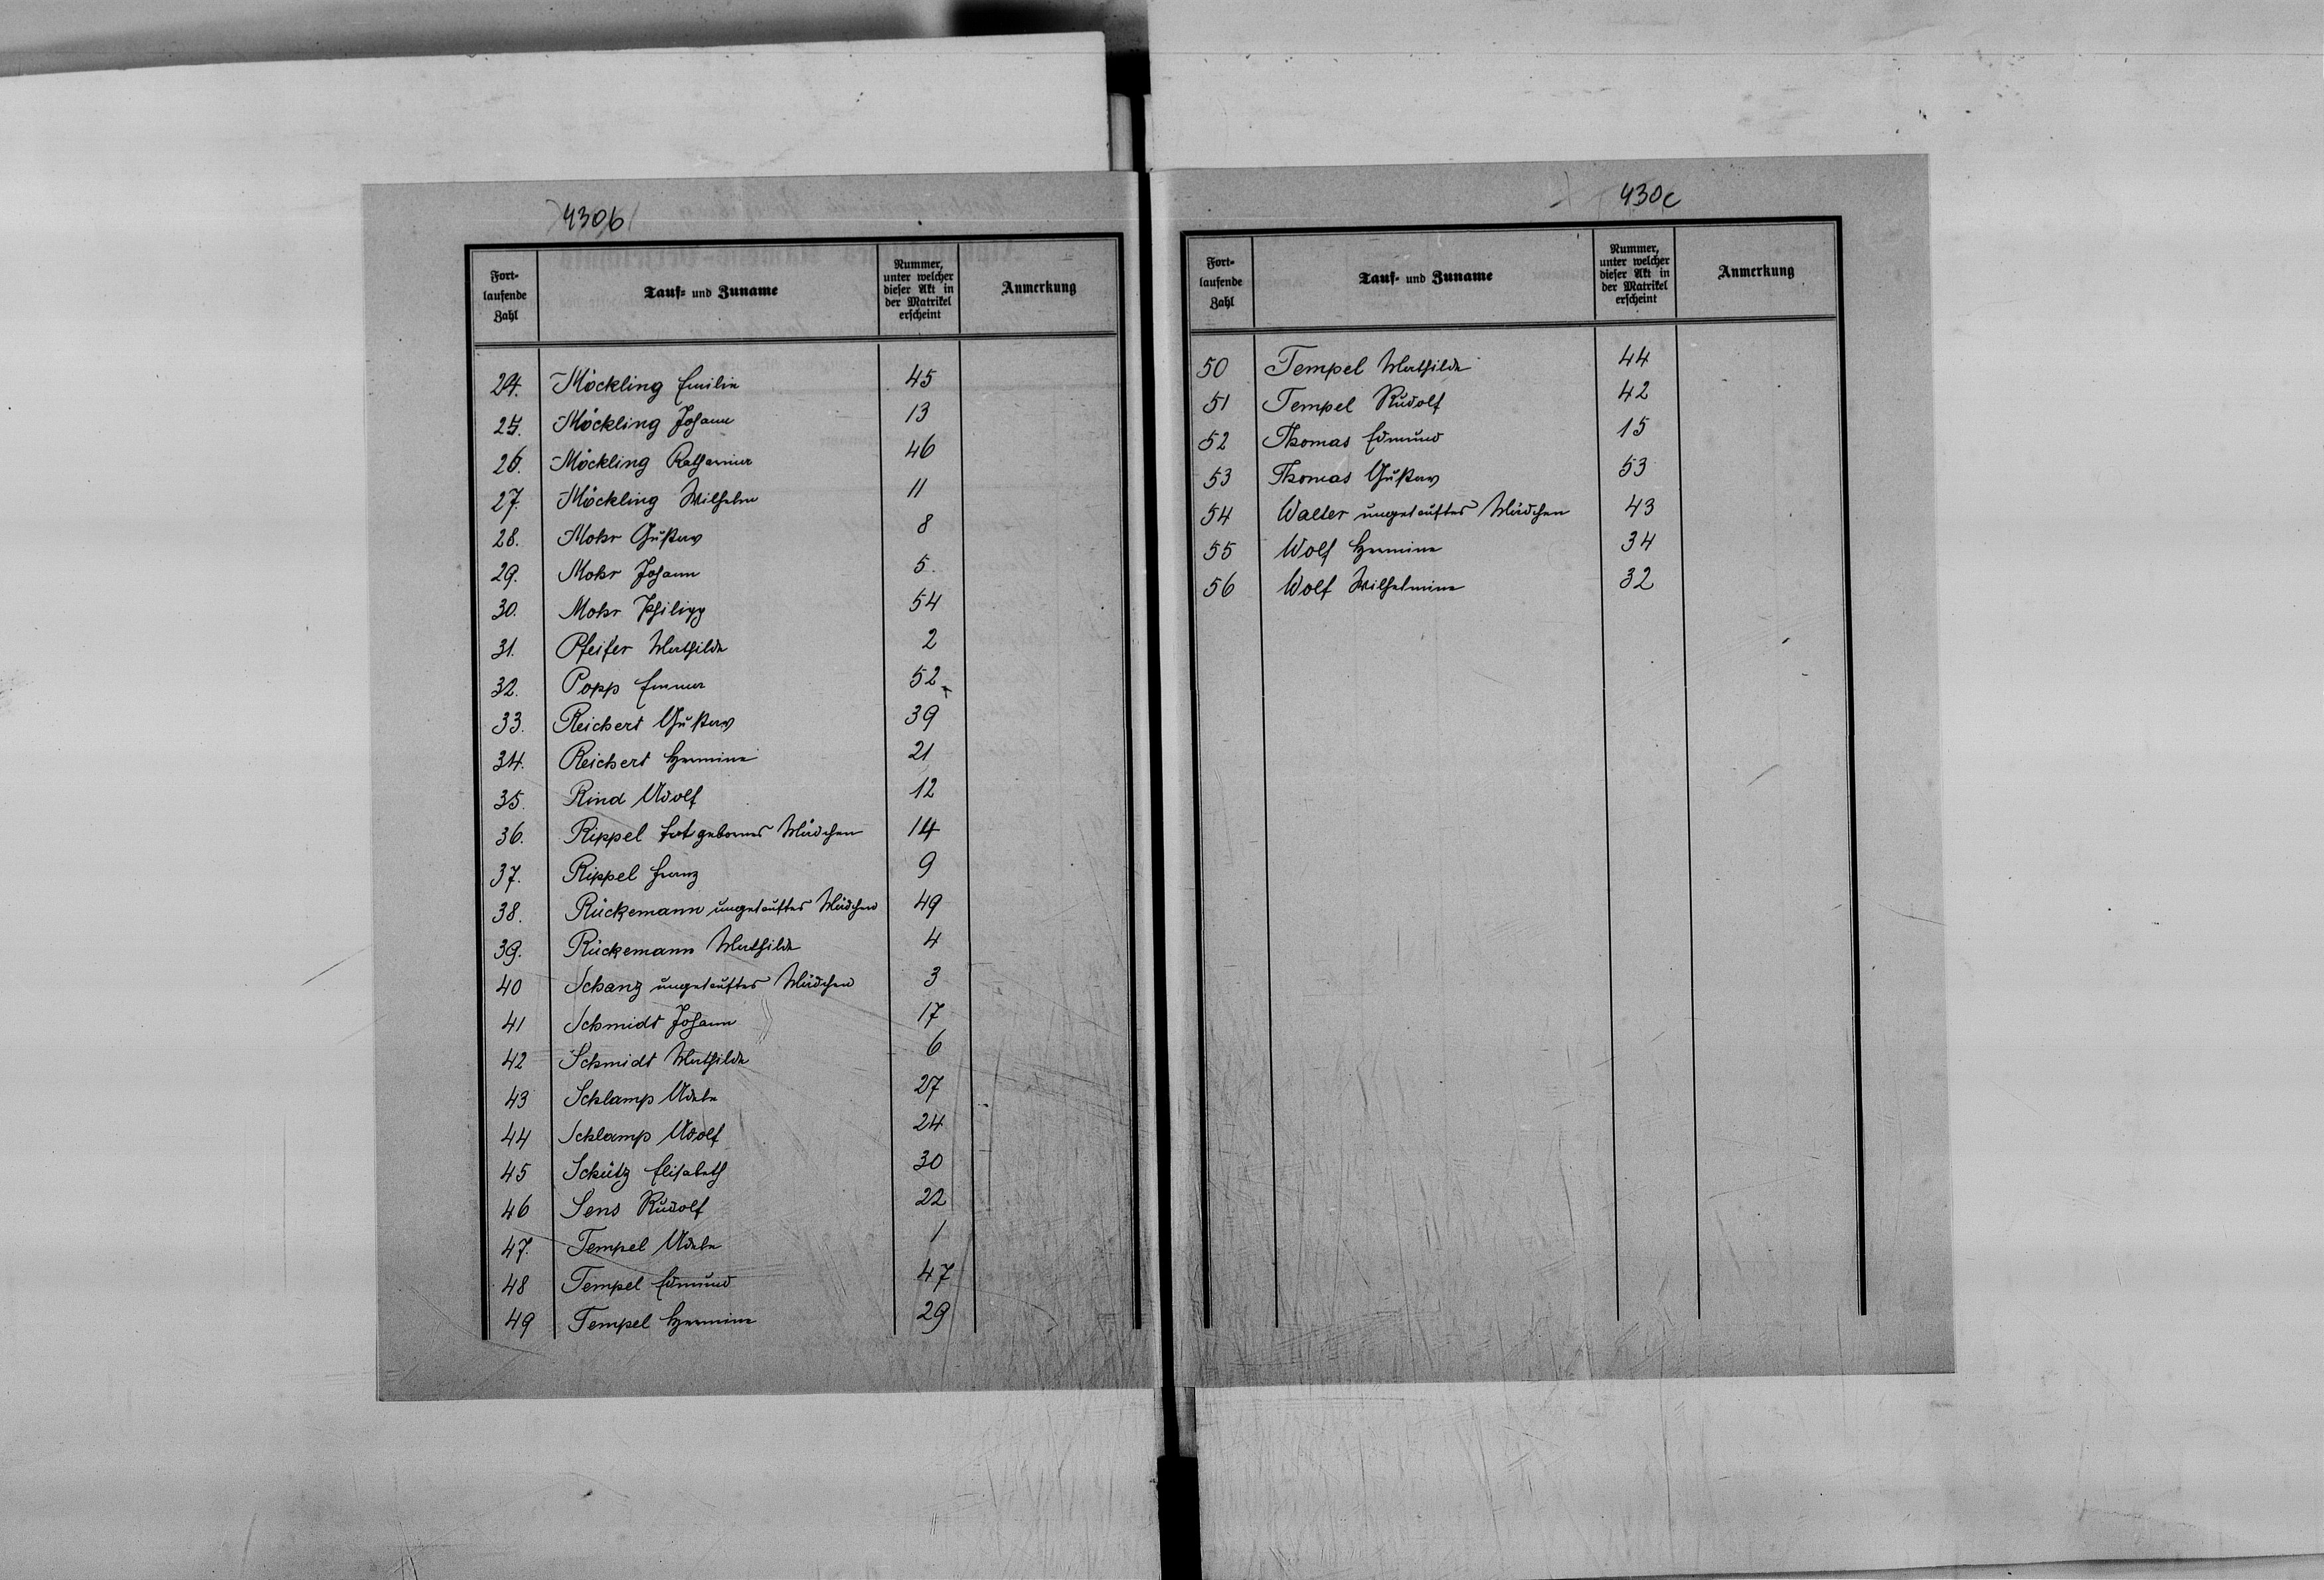 430b
Fort-laufende Zahl | Tauf- und Zuname | Nummer, unter welcher dieser Akt in der Matrikel erscheint | Anmerkung
24. Möckling Emilie 45
25. Möckling Johann 13
26. Möckling Katharina 46
27. Möckling Wilhelm 11
28. Mohr Gustav 8
29. Mohr Johann 5.
30. Mohr Philipp 54
31. Pfeifer Mathilde 2
32. Popp Emma 52
33. Reichert Gustav 39
34. Reichert Hermine 21
35. Rind Adolf 12
36. Rippel totgebornes Mädchen 14
37. Rippel Franz 9
38. Rückemann ungetauftes Mädchen 49
39. Rückemann Mathilde 4
40 Schanz ungetauftes Mädchen 3
41 Schmidt Johann 17
42 Schmidt Mathilde 6
43 Schlamp Adele 27
44 Schlamp Adolf 24
45 Schütz Elisabeth 30
46 Sens Rudolf 22
47. Tempel Adele 1
48 Tempel Edmund 47
49 Tempel Hermine 29
430c
Fort-laufende Zahl | Tauf- und Zuname | Nummer, unter welcher dieser Akt in der Matrikel erscheint | Anmerkung
50 Tempel Mathilde 44
51 Tempel Rudolf 42
52 Thomas Edmund 15
53 Thomas Gustav 53
54 Walter ungetauftes Mädchen 43
55 Wolf Hermine 34
56 Wolf Wilhelmine 32